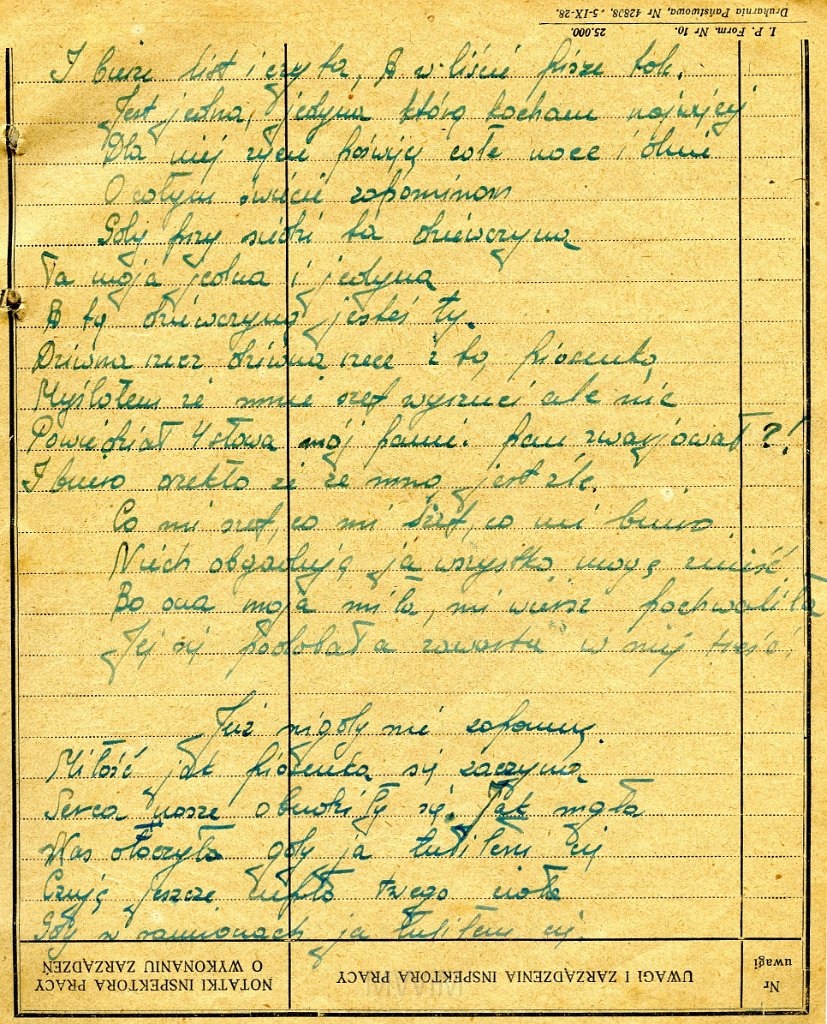 Drukarnia Państwowa, Nr 42808. 5-IX-28.
I. P. Form. Nr 10. 25.000.
I bierze list i czyta, A w liście pisze tak.
Jest jedna, jedyna którą kocham najwięcej
Dla niej życie poświęcę całe noce i dnie
O całym świecie zapominam
Gdy przy siedzi ta dziewczyna
Ta moja jedna i jedyna
A tą dziewczyną jesteś ty.
Dziwna rzecz dziwna rzecz z tą piosenką
Myślałem że mnie szef wyrzuci ale nie
Powiedział 4 słowa mój panie. pan zwarjował?!
I biuro orzekło że ze mną jest źle.
Co mi szef, co mi szef, co mi biuro
Niech obgadują ja wszystko mogę znieść
Bo ona moja miła, mi wiersz pochwaliła
Jej się podobała zawarta w niej treść.
Już nigdy nie zapomnę.
Miłość jak piosenka się zaczyna
Serca nasze obudziły się. Jak mgła
Nas otoczyła gdy ja tuliłem cię
Czuję jeszcze ciepło twego ciała
Gdy w ramionach ja tuliłem cię.
NOTATKI INSPEKTORA PRACY O WYKONANIU ZARZĄDZEŃ
UWAGI I ZARZĄDZENIA INSPEKTORA PRACY
Nr uwagi